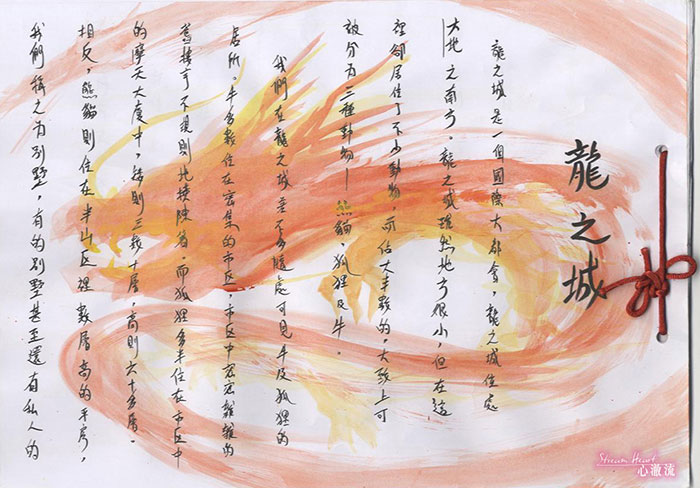 龍之城
龍之城是一個國際大都會，龍之城位處
大地之南方。龍之城雖然地方很小，但在這
裡卻居住了不少動物，而佔大半數的，大致上可
被分為三種動物—熊貓，狐狸及牛。
我們在龍之城差不多隨處可見牛及狐狸的
居所。牛多數住在密集的市区，市区中密密雜雜的
舊樓宇不規則地接陳着。而狐狸多半住在市区中
的摩天大廈中，矮則三幾十層，高則六十多層。
相反，熊貓則住在半山区裡數層高的平房，
我們稱之為別墅，有的別墅甚至還有私人的
Stream Heart
心澈流